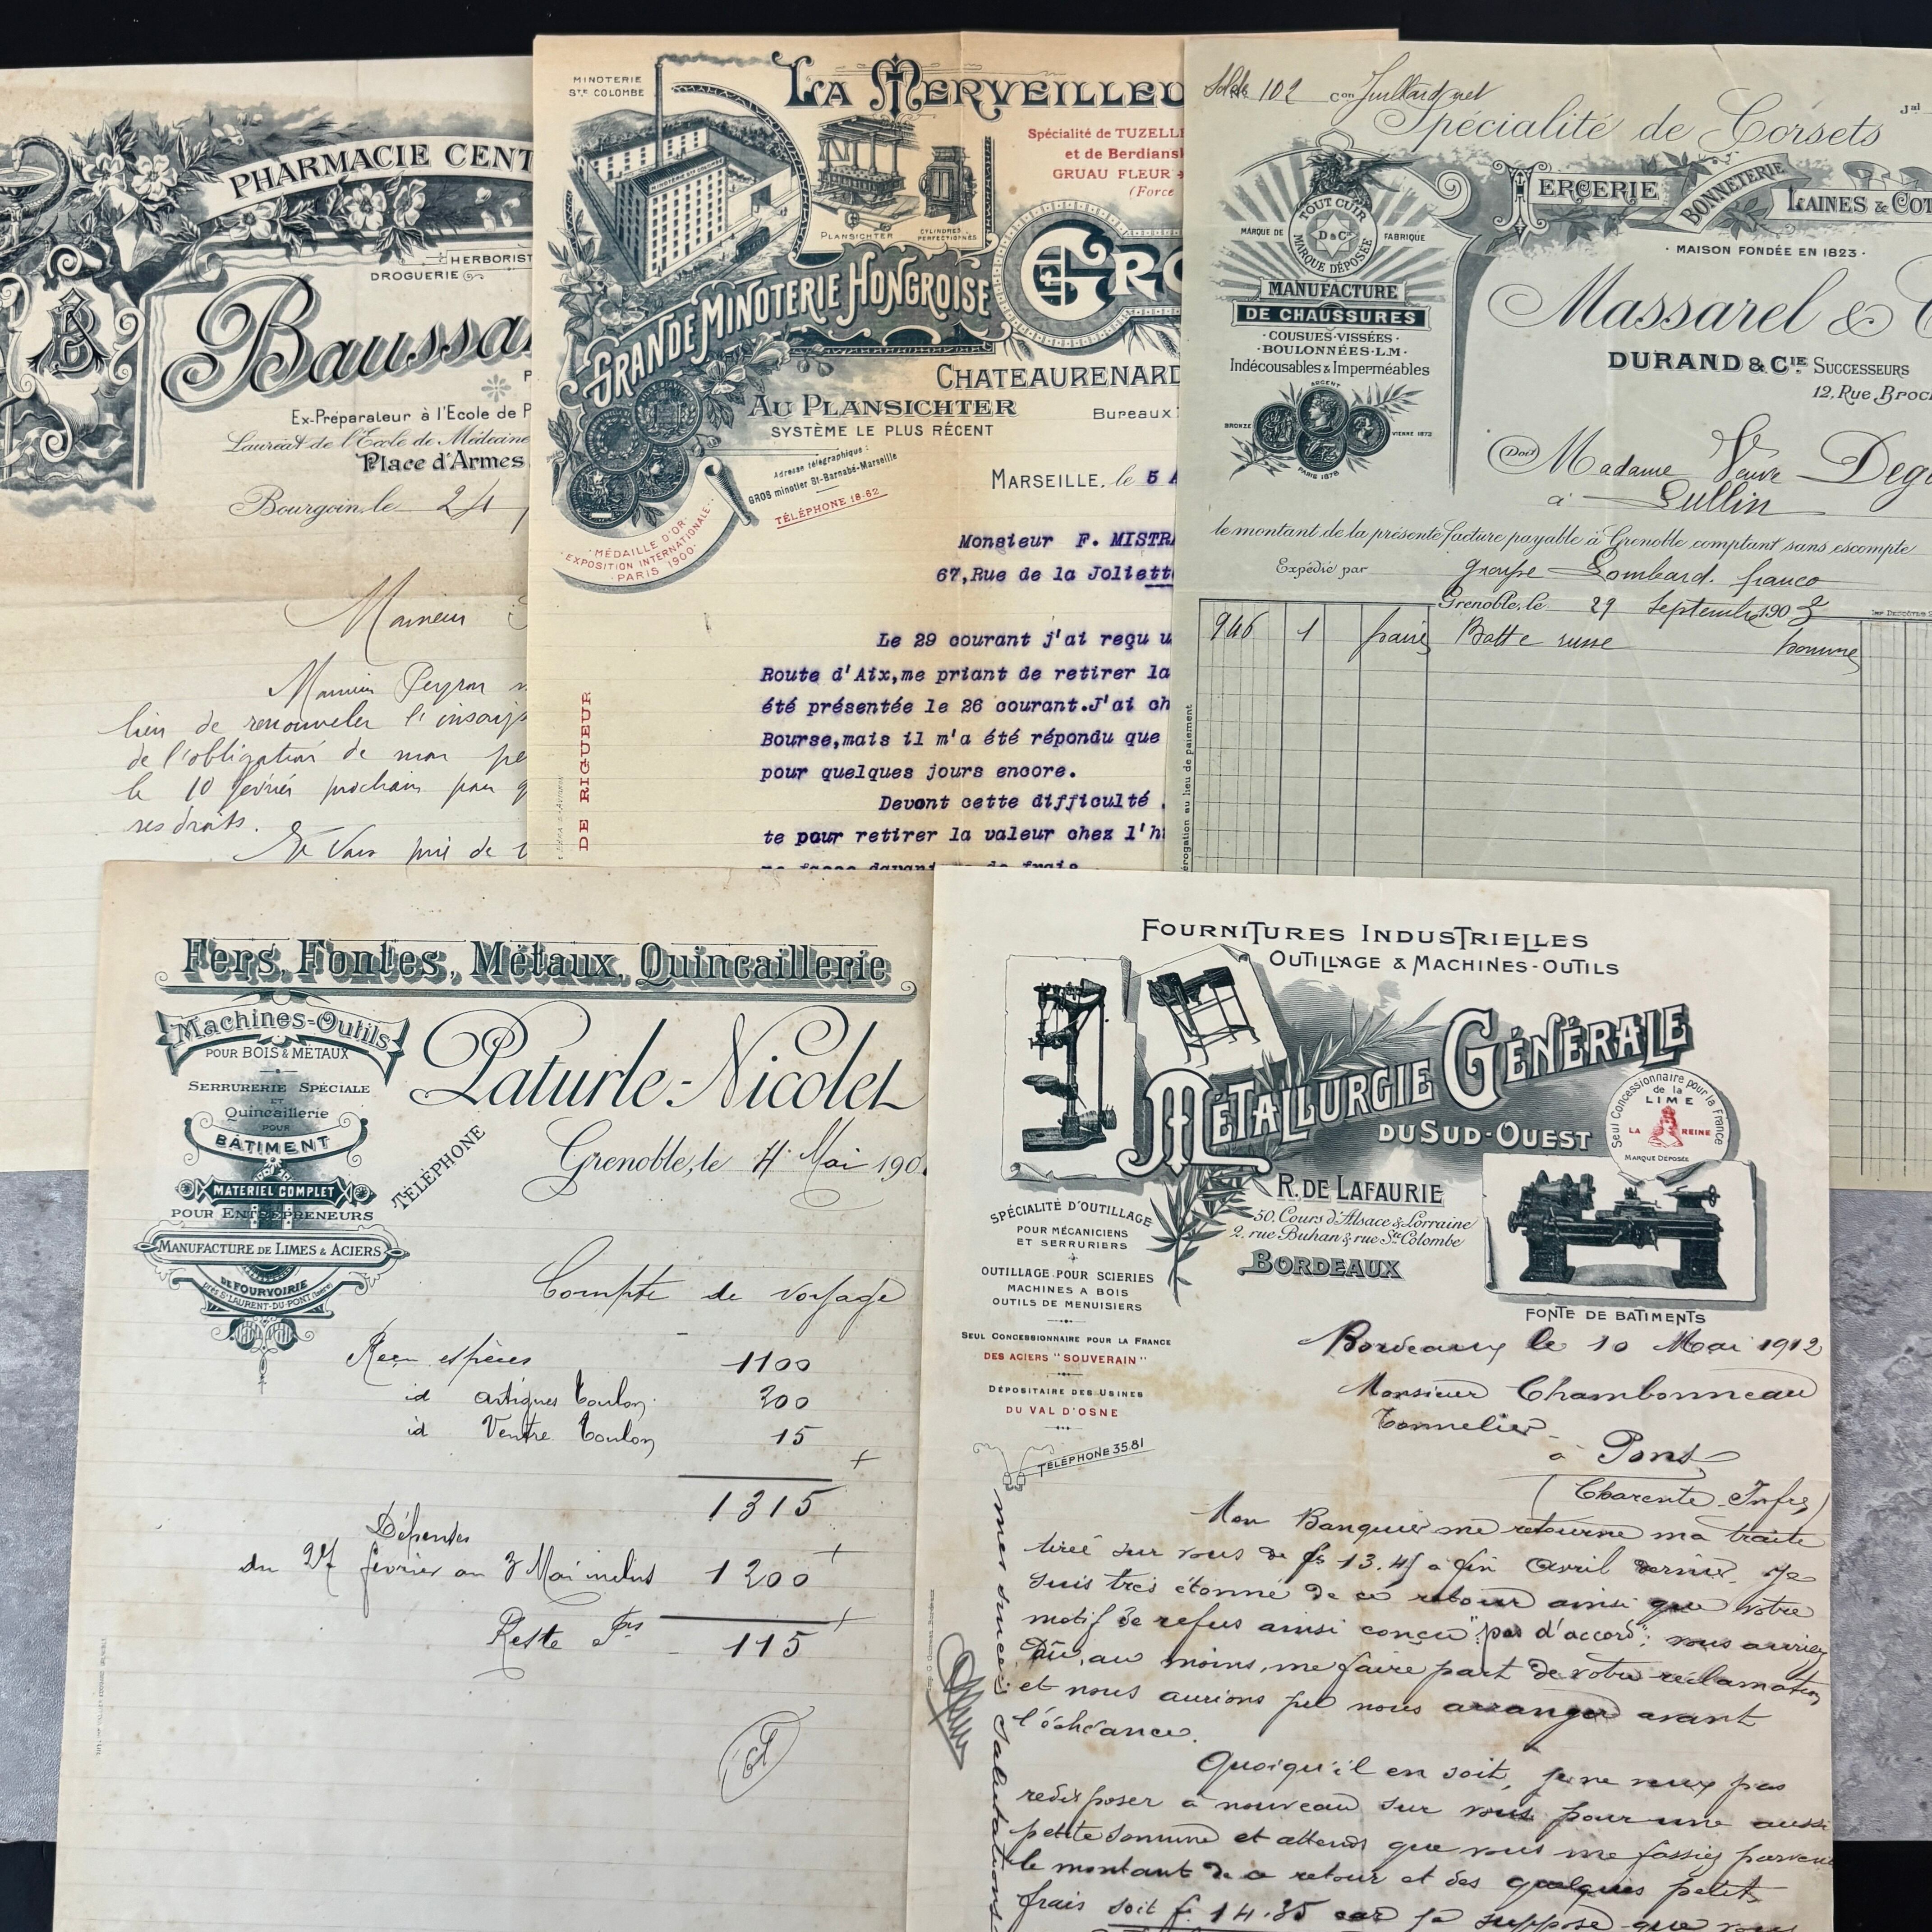 PHARMACIE CENT
HERBORIST
DROGUERIE
Baussa
Ex-Préparateur à l'Ecole de P
Lauréat de l'Ecole de Médecine
Place d'Armes
Bourgoin, le 24
Monsieur
Monsieur Peyron
lieu de renouveler l'inscrip
de l'obligation de mon pè
le 10 février prochain pour
ses droits.
Je vous prie de
MINOTERIE
STE COLOMBE
LA MERVEILLEU
Spécialité de TUZELLE
et de Berdiansk
GRUAU FLEUR
(Force
PLANSICHTER
CYLINDRES
PERFECTIONNÉS
GRANDE MINOTERIE HONGROISE
GRO
CHATEAURENARD
AU PLANSICHTER
Bureaux
SYSTÈME LE PLUS RÉCENT
Adresse télégraphique :
GROS minotier St-Barnabé-Marseille
TÉLÉPHONE 18-62
MÉDAILLE D'OR
EXPOSITION INTERNATIONALE
PARIS 1900
MARSEILLE, le 5 A
Monsieur F. MISTRA
67,Rue de la Joliett
Le 29 courant j'ai reçu u
Route d'Aix,me priant de retirer la
été présentée le 26 courant.J'ai ch
Bourse,mais il m'a été répondu que
pour quelques jours encore.
Devant cette difficulté
te pour retirer la valeur chez l'h
DE RIGUEUR
102
Con
Spécialité de Corsets
Jal
MERCERIE
BONNETERIE
LAINES & COT
MAISON FONDÉE EN 1823
TOUT CUIR
MARQUE DE
D & Cie
FABRIQUE
MARQUE DÉPOSÉE
MANUFACTURE
DE CHAUSSURES
COUSUES-VISSÉES
BOULONNÉES-L.M.
Indécousables & Imperméables
ARGENT
BRONZE
VIENNE 1873
PARIS 1878
Massarel & C
DURAND & CIE SUCCESSEURS
12, Rue Broc
Doit Madame Veuve Deg
à Lullin
le montant de la présente facture payable à Grenoble comptant sans escompte
Expédié par groupe Lombard. franco
Grenoble, le 29 Septembre 190
946 1 paire Botte russe homme
érogation au lieu de paiement
Fers, Fontes, Métaux, Quincaillerie
Machines-Outils
POUR BOIS & MÉTAUX
SERRURERIE SPÉCIALE
ET
Quincaillerie
POUR
BÂTIMENT
MATERIEL COMPLET
POUR ENTREPRENEURS
MANUFACTURE DE LIMES & ACIERS
DE FOURVOIRIE
PRÈS ST LAURENT-DU-PONT (Isère)
Paturle-Nicolet
TÉLÉPHONE
Grenoble, le 4 Mai 190
Compte de voyage
Reçu espèces 1100
id Artigues Toulon 200
id Ventre Toulon 15
1315
Dépenses
du 27 février au 3 Mai inclus 1200
Reste Frs 115
FOURNITURES INDUSTRIELLES
OUTILLAGE & MACHINES-OUTILS
MÉTALLURGIE GÉNÉRALE
DU SUD-OUEST
Seul Concessionnaire pour la France
de la
LIME
LA REINE
MARQUE DÉPOSÉE
R. DE LAFAURIE
50, Cours d'Alsace & Lorraine
2, rue Buhan & rue Ste Colombe
BORDEAUX
SPÉCIALITÉ D'OUTILLAGE
POUR MÉCANICIENS
ET SERRURIERS
OUTILLAGE POUR SCIERIES
MACHINES A BOIS
OUTILS DE MENUISIERS
SEUL CONCESSIONNAIRE POUR LA FRANCE
DES ACIERS "SOUVERAIN"
DÉPOSITAIRE DES USINES
DU VAL D'OSNE
TÉLÉPHONE 35.81
FONTE DE BATIMENTS
Bordeaux le 10 Mai 1912
Monsieur Chambonneau
Tonnelier
à Pons
(Charente Infre)
Mon Banquier me retourne ma traite
tirée sur vous de frs 13.45 à fin avril dernier. Je
suis très étonné de ce retour ainsi que votre
motif de refus ainsi conçu "pas d'accord"; vous auriez
Dû, au moins, me faire part de votre réclamation
et nous aurions pu nous arranger avant
l'échéance.
Quoiqu'il en soit, je ne veux pas
redisposer à nouveau sur vous pour une aussi
petite somme et attends que vous me fassiez parvenir
le montant de ce retour et des quelques petits
frais soit f. 14.35 car je suppose que vous
mes sincères salutations